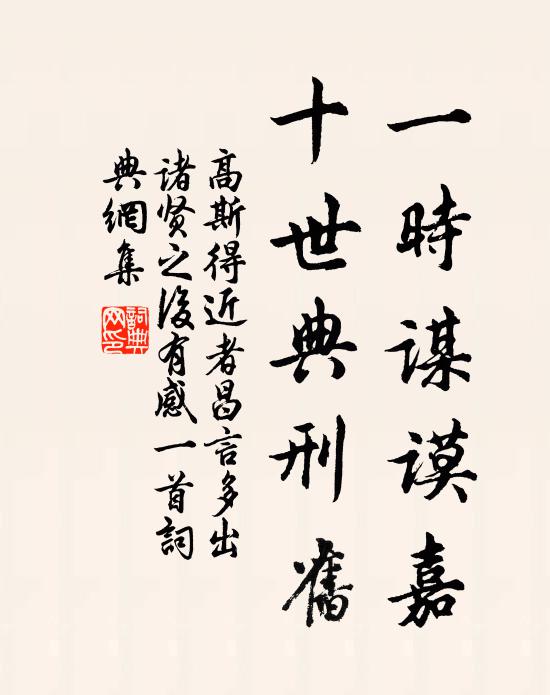 一時謀謨嘉
十世典刑舊
高斯得近者昌言多出
諸贤之後有感一首詞
典網集
詞典
网印